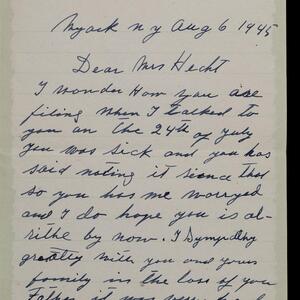 Nyack n y Aug 6 1945
Dear Mrs Hecht
I wonder How you are
filing when I talked to
you on the 24th of July
you was sick and you has
said noting it sience that
so you has me worryed
and I do hope you is al-
rithe by now. I Sympathy
greatley with you and youre
family in the loss of you
Father it was